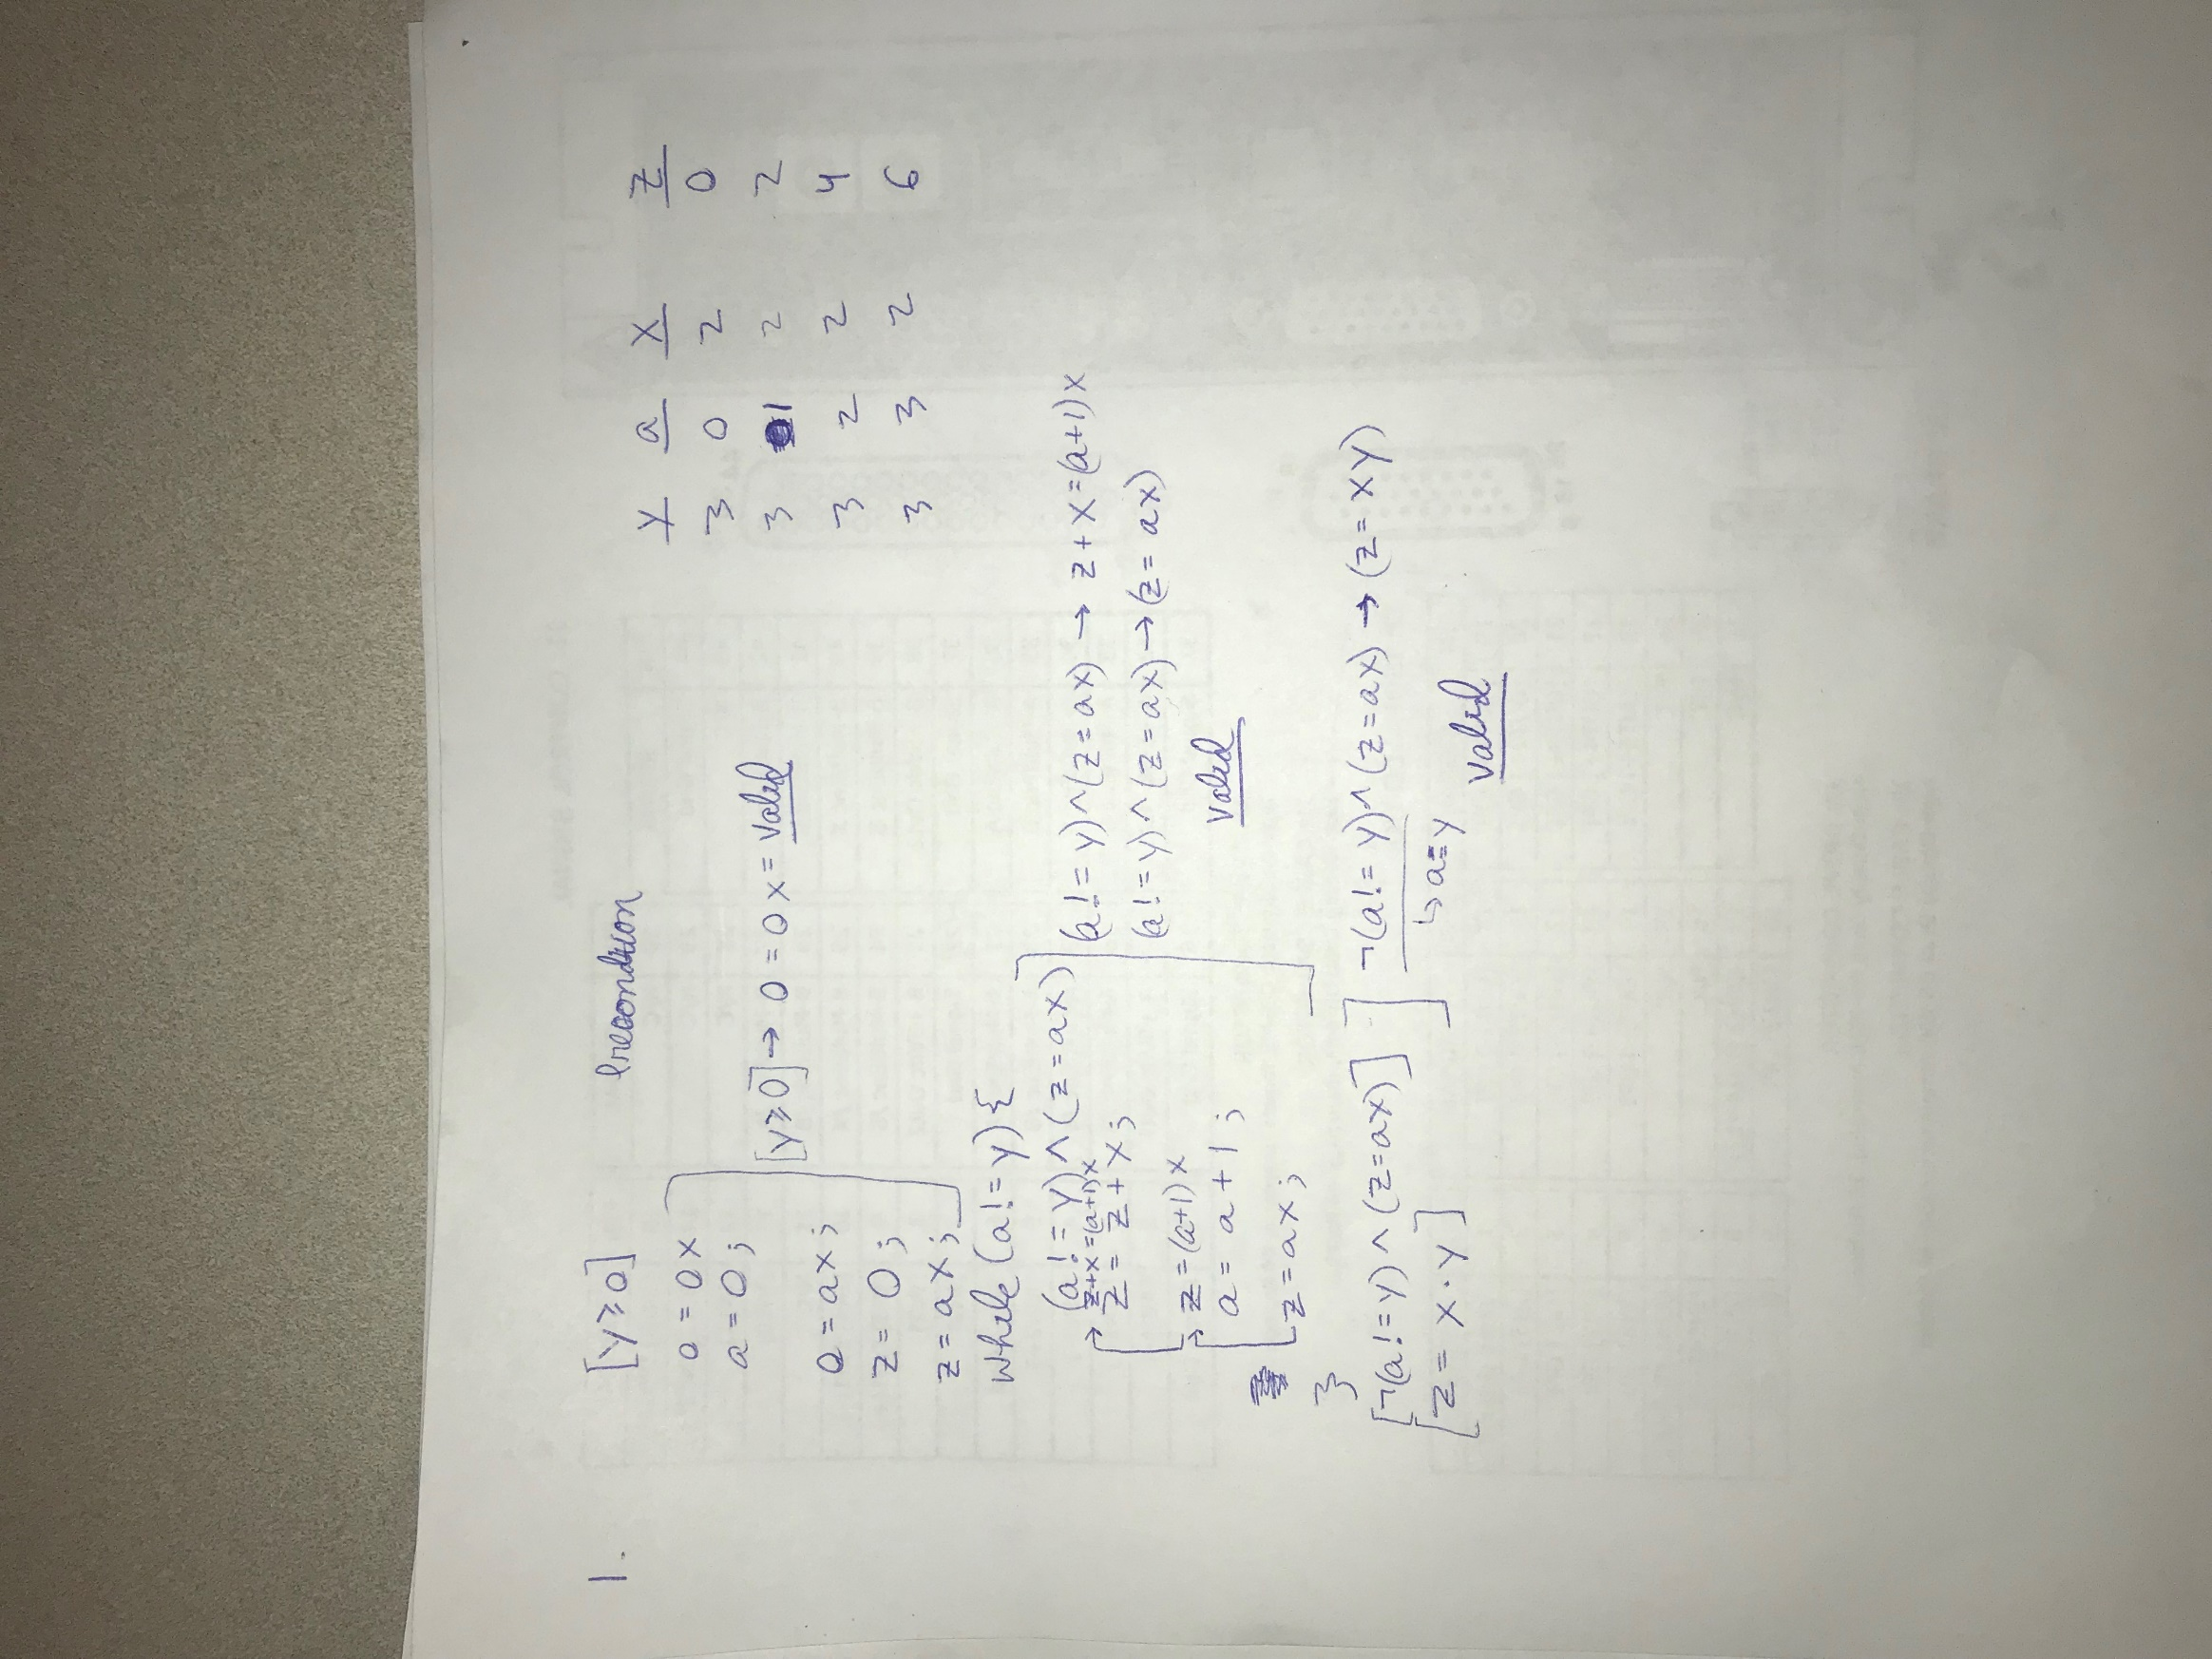 1.
[y≥0] Precondition
0 = 0x
a = 0;
[y≥0] → 0 = 0x = valid
0 = ax;
z = 0;
z = ax;
while (a != y) {
(a != y) ^ (z = ax)
z+x=(a+1)x
z = z + x;
z = (a+1)x
a = a + 1;
z = ax;
}
(a != y) ^ (z = ax) → z + x = (a+1)x
(a != y) ^ (z = ax) → (z = ax)
valid
[¬(a != y) ^ (z=ax)]
[z = x · y]
¬(a != y) ^ (z = ax) → (z = xy)
↳ a = y
valid
y a x z
3 0 2 0
3 1 2 2
3 2 2 4
3 3 2 6